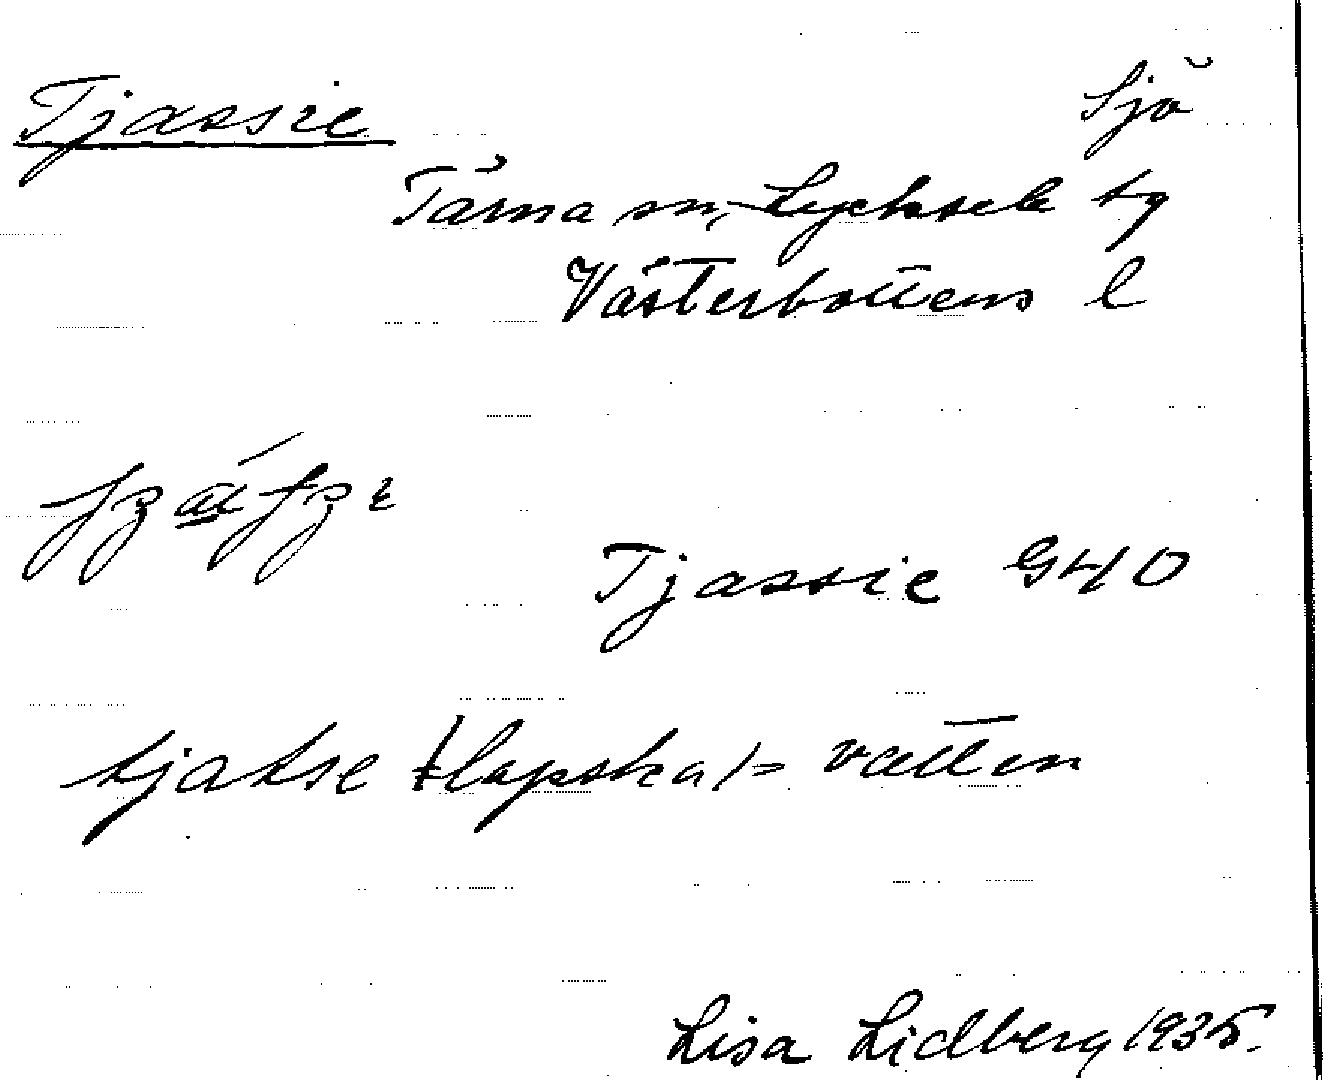 Tjassie
Sjö
Tärna sn, Lycksele tg
Västerbottens l
Tjassie G40
tjatse (lapska) = vatten
Lisa Lidberg 1935.